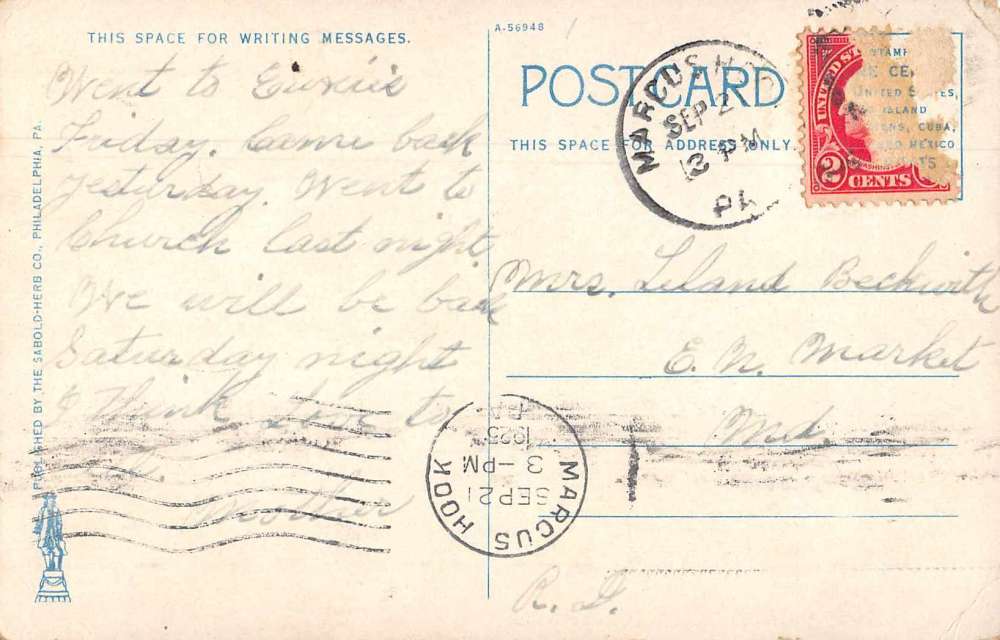 THIS SPACE FOR WRITING MESSAGES.
A-56948
POST CARD
THIS SPACE FOR ADDRESS ONLY.
MARCUS
SEP 2
PM
PA
UNITED ST
2 CENTS
WASHING
STAMP
UNITED S ES,
ISLAND
CUBA,
MEXICO
Went to
Friday. Came back
yesterday. Went to
Church last night.
We will be back
Saturday night
I think love to
Mother
Mrs. Leland Beckwith
E. N. Market
Md.
R. D.
MARCUS HOOK
SEP 21
3 - PM
1925
PA
PUBLISHED BY THE SABOLD-HERB CO., PHILADELPHIA, PA.